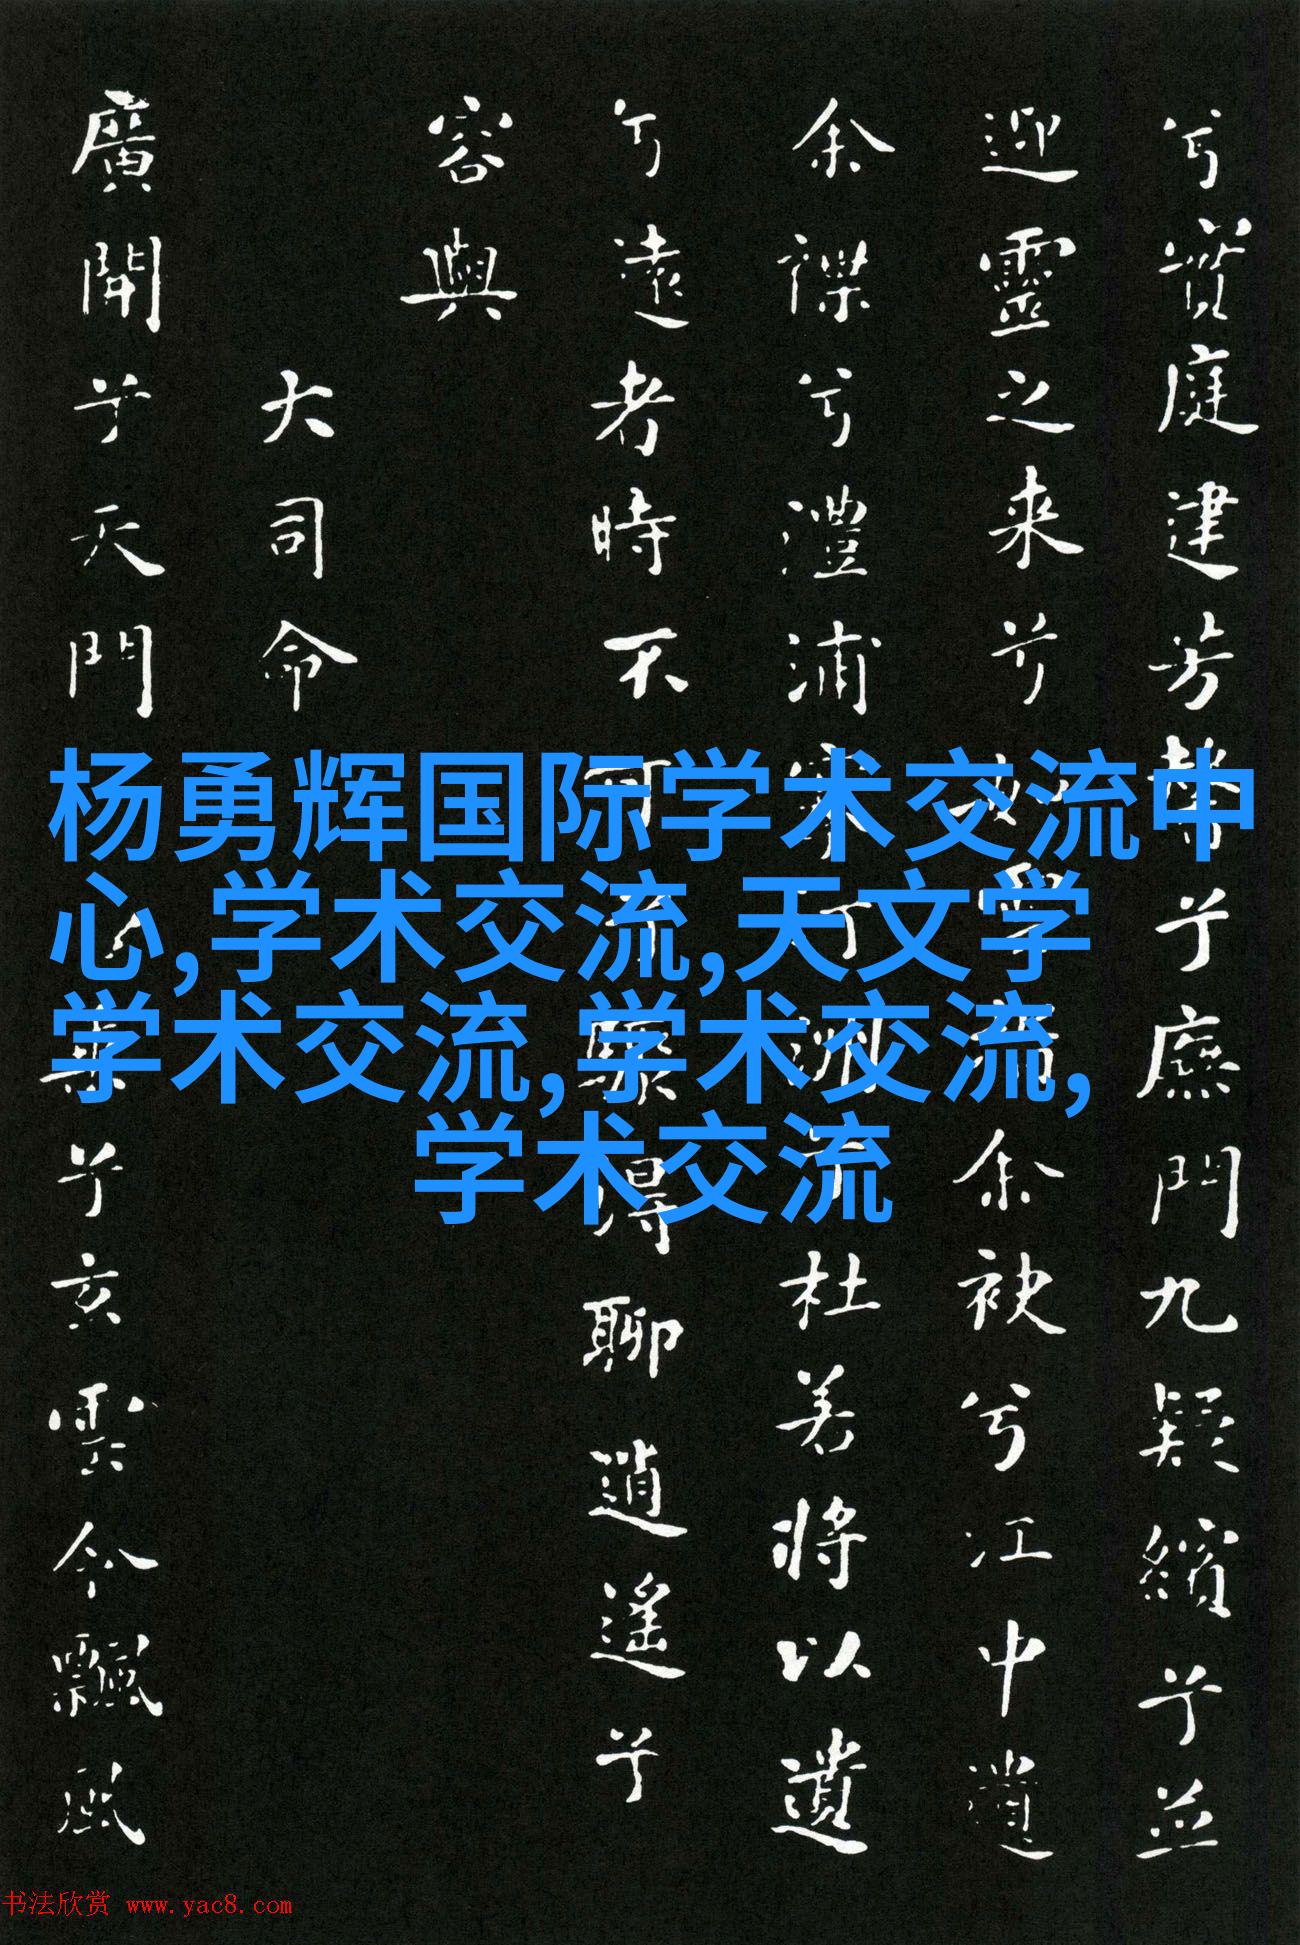 兮實庭建芳馨兮廡門九疑繽兮並
迎靈之来兮如雲捐余袂兮江中遺
余褋兮澧浦搴汀洲兮杜若將以遺
兮遠者時不可兮驟得聊逍遙兮
容與
大司命
廣開兮天門乘兮玄雲令飄風
杨勇辉国际学术交流中
心,学术交流,天文学
学术交流,学术交流,
学术交流
书法欣赏 www.yac8.com